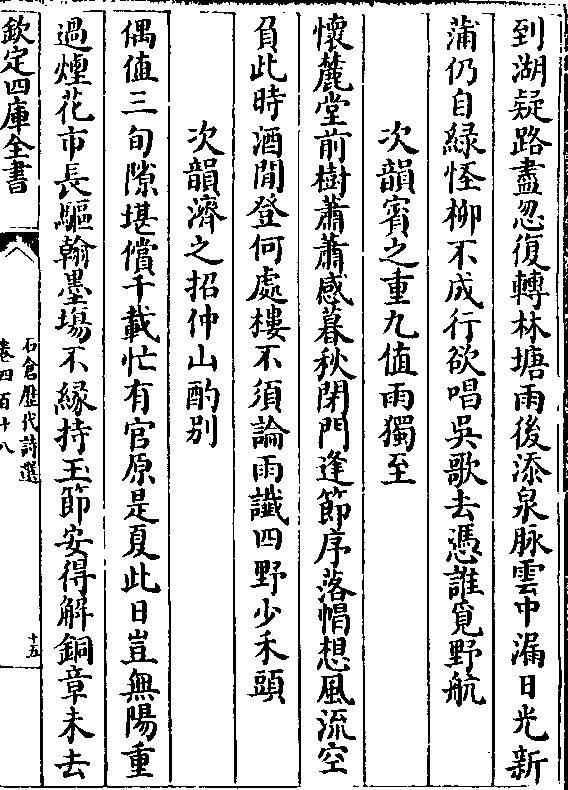 到湖疑路盡忽復轉林塘雨後添泉脉雲中漏日光新
蒲仍自緑怪柳不成行欲唱吳歌去憑誰覓野航
次韻賓之重九值雨獨至
懷麓堂前樹蕭蕭感暮秋閉門逢節序落帽想風流空
負此時酒閒登何處樓不須論雨讖四野少禾頭
次韻濟之招仲山酌别
偶值三旬隙堪償千載忙有官原是夏此日豈無陽重
過煙花市長驅翰墨塲不縁持玉節安得解銅章未去
欽定四庫全書
石倉歴代詩選
卷四百十八
十五